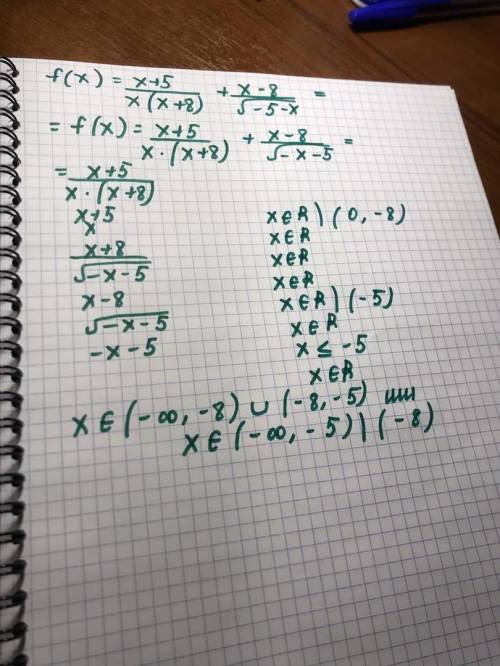 f(x) = x+5/x(x+8) + x-8/√-5-x =
= f(x) = x+5/x·(x+8) + x-8/√-x-5 =
= x+5/x·(x+8)
x+5 x∈R\(0,-8)
x x∈R
x+8 x∈R
√-x-5 x∈R
x-8 x∈R\(-5)
√-x-5 x∈R
-x-5 x≤-5
x∈R
x∈(-∞,-8)∪(-8,-5) или
x∈(-∞,-5)\(-8)